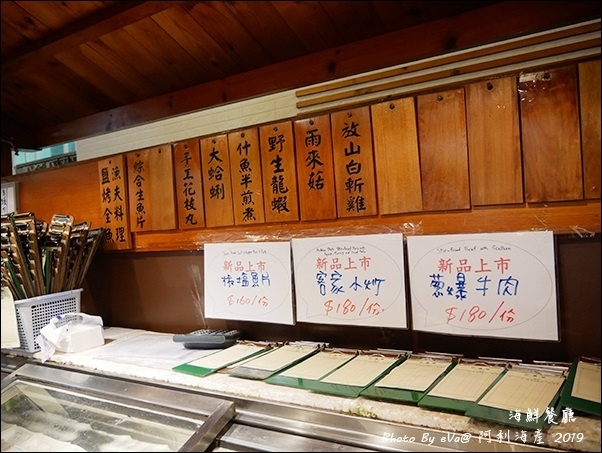 漁夫料理
鹽烤全魚
綜合生魚片
手工花枝丸
大蛤蜊
什魚半煎煮
野生龍蝦
雨來菇
放山白斬雞
新品上市
椒塩魚片
$160/份
新品上市
客家小炒
$180/份
新品上市
蔥爆牛肉
$180/份
海鮮餐廳
Photo By eVa@ 阿利海產 2019